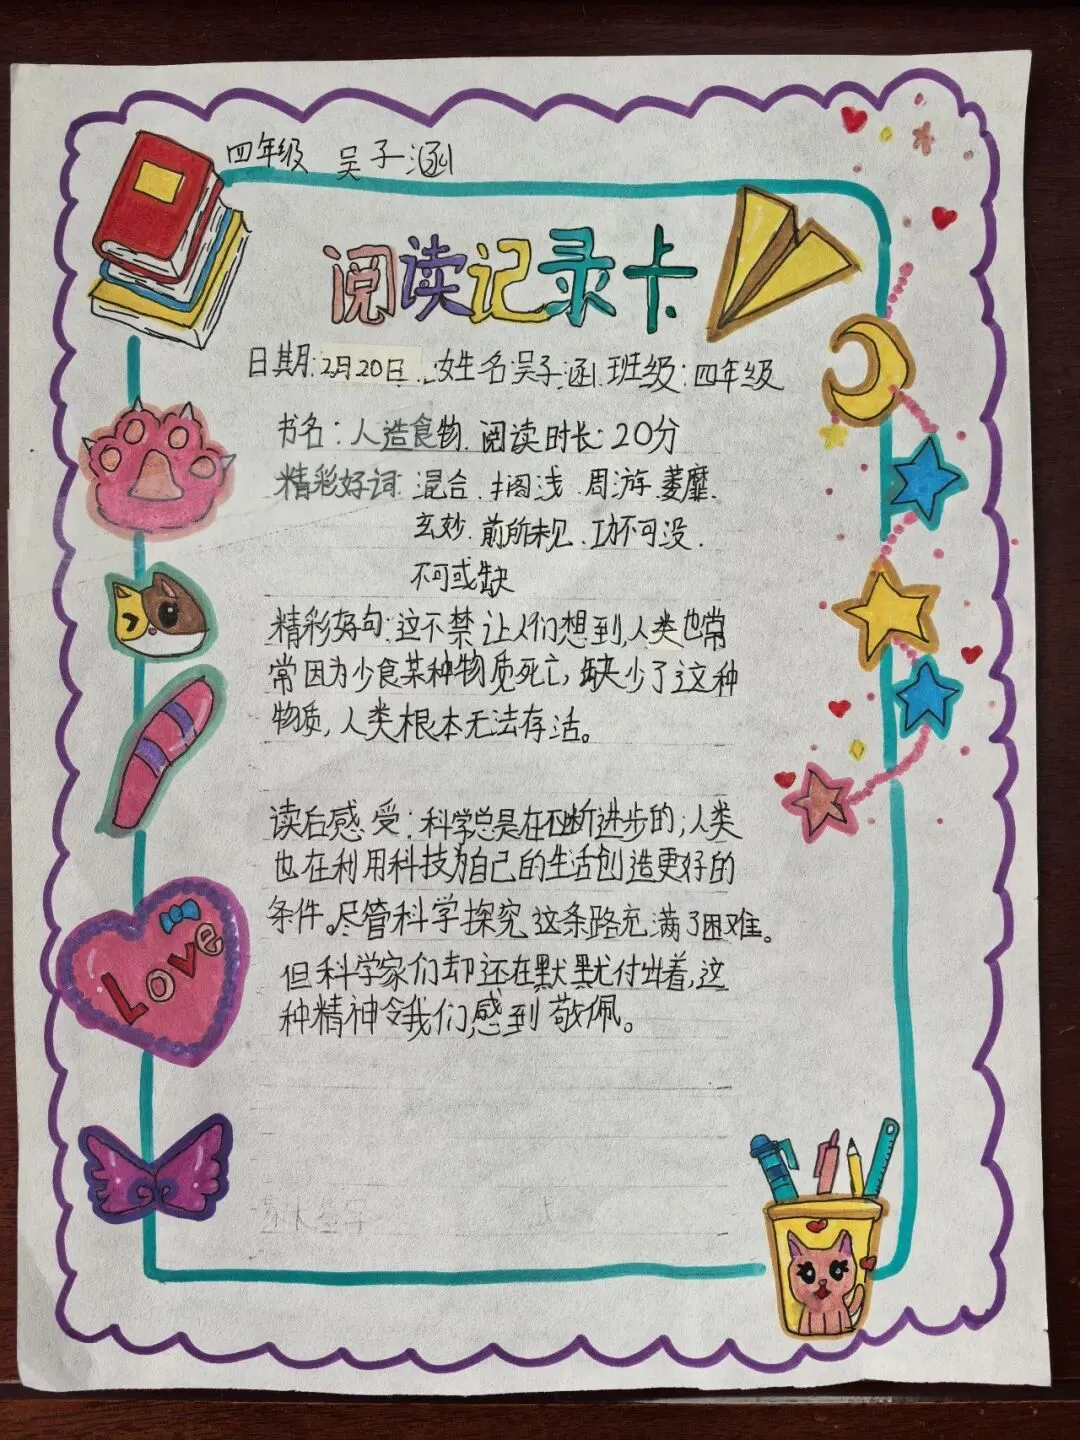 四年级 吴子涵
阅读记录卡
日期:2月20日 姓名吴子涵 班级:四年级
书名:人造食物 阅读时长:20分
精彩好词 混合 搁浅 周游 萎靡
玄妙 前所未见 功不可没
不可或缺
精彩好句:这不禁让人们想到,人类也常
常因为少食某种物质死亡,缺少了这种
物质,人类根本无法存活。
读后感受:科学总是在不断进步的,人类
也在利用科技为自己的生活创造更好的
条件。尽管科学探究这条路充满了困难。
但科学家们却还在默默付出着,这
种精神令我们感到敬佩。
Love